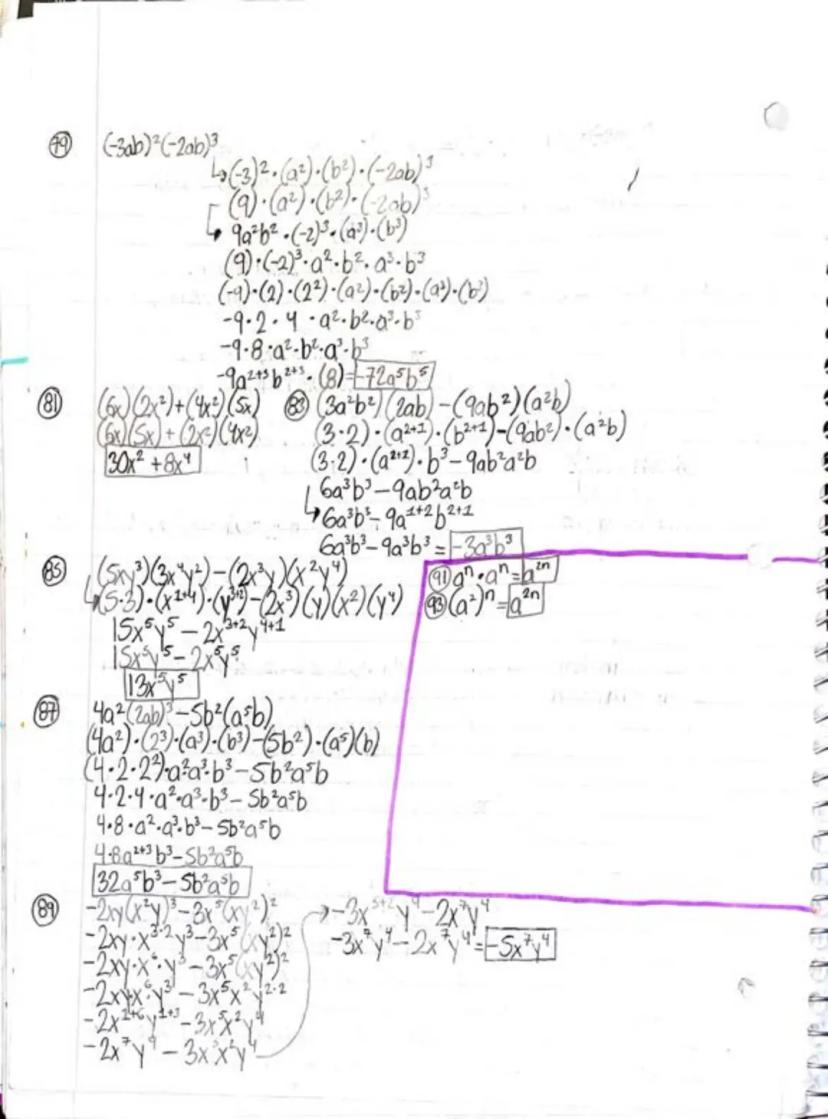 79 (-3ab)²(-2ab)³
(-3)²·(a²)·(b²)·(-2ab)³
(9)·(a²)·(b²)·(-2ab)³
9a²b²·(-2)³·(a³)·(b³)
(9)·(-2)³·a²·b²·a³·b³
(-9)·(2)·(2²)·(a²)·(b²)·(a³)·(b³)
-9·2·4·a²·b²·a³·b³
-9·8·a²·b²·a³·b³
-9a²⁺³b²⁺³·(8)=-72a⁵b⁵
81 (6x)(2x²)+(4x²)(5x)
(6x)(5x)+(2x²)(4x²)
30x²+8x⁴
83 (3a²b²)(2ab)-(9ab²)(a²b)
(3·2)·(a²⁺¹)·(b²⁺¹)-(9ab²)·(a²b)
(3·2)·(a²⁺¹)·b³-9ab²a²b
6a³b³-9ab²a²b
6a³b³-9a¹⁺²b²⁺¹
6a³b³-9a³b³=-3a³b³
85 (5xy³)(3x⁴y²)-(2x³y)(x²y⁴)
(5·3)·(x¹⁺⁴)·(y³⁺²)-(2x³)(y)(x²)(y⁴)
15x⁵y⁵-2x³⁺²y⁴⁺¹
15x⁵y⁵-2x⁵y⁵
13x⁵y⁵
91 aⁿ·aⁿ=a²ⁿ
93 (a²)ⁿ=a²ⁿ
87 4a²(2ab)³-5b²(a⁵b)
(4a²)·(2³)·(a³)·(b³)-(5b²)·(a⁵)(b)
(4·2·2²)·a²a³·b³-5b²a⁵b
4·2·4·a²·a³·b³-5b²a⁵b
4·8·a²·a³·b³-5b²a⁵b
4·8a²⁺³b³-5b²a⁵b
32a⁵b³-5b²a⁵b
89 -2xy(x²y)³-3x⁵(xy²)²
-2xy·x³·²y³-3x⁵(xy²)²
-2xy·x⁶·y³-3x⁵(xy²)²
-2xy·x⁶y³-3x⁵x²y²·²
-2x¹⁺⁶y¹⁺³-3x⁵x²y⁴
-2x⁷y⁴-3x⁵x²y⁴
-3x⁵⁺²y⁴-2x⁷y⁴
-3x⁷y⁴-2x⁷y⁴=-5x⁷y⁴